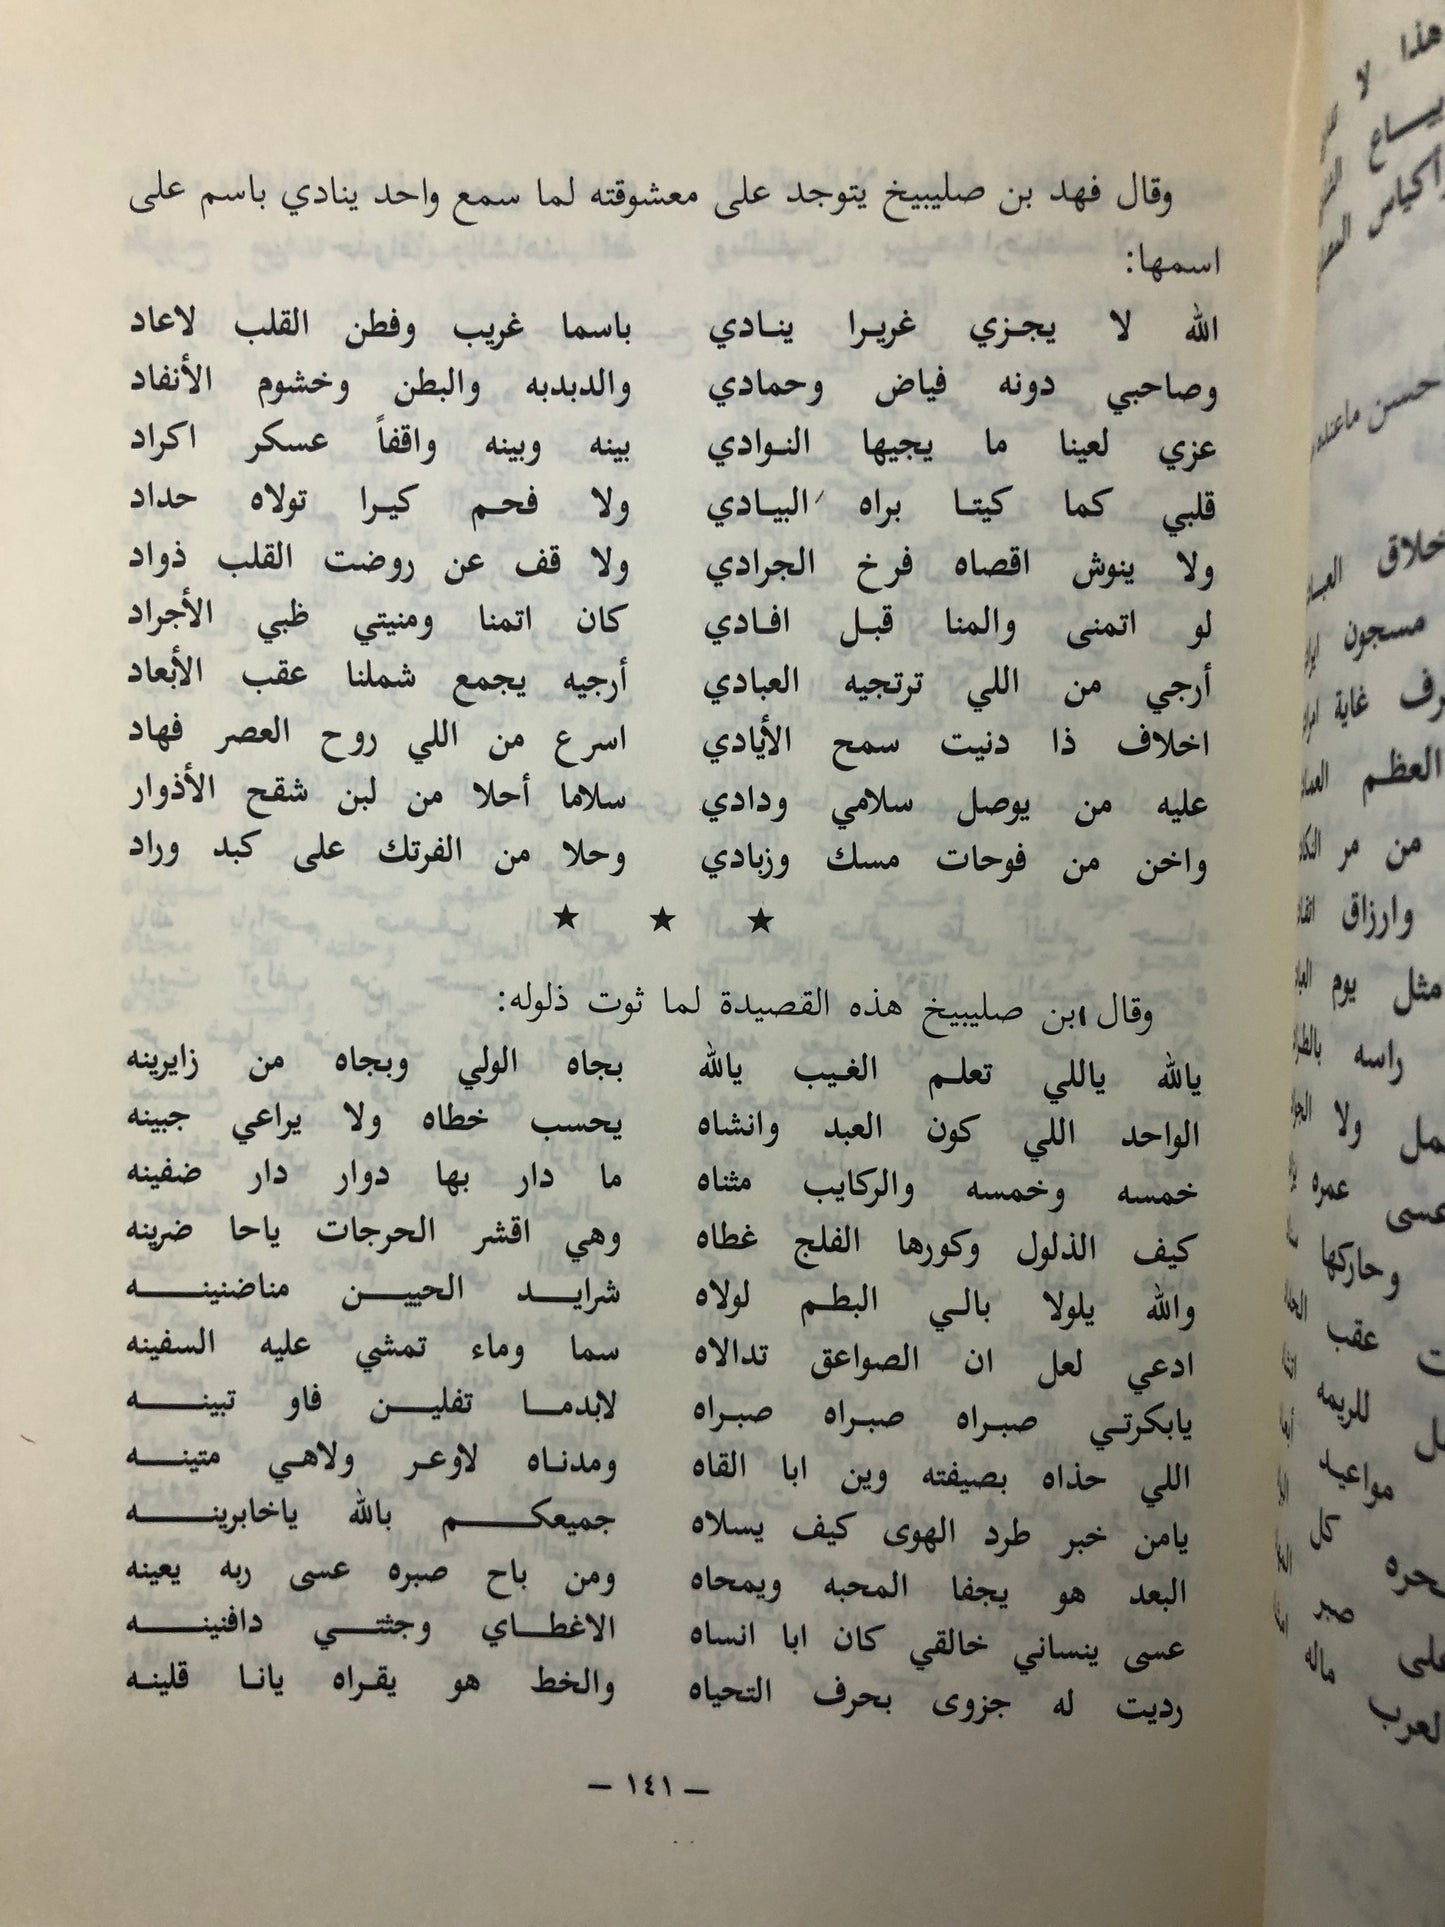 وقال فهد بن صليبيخ يتوجد على معشوقته لما سمع واحد ينادي باسم على
اسمها:
الله لا يجزي غريرا ينادي باسما غريب وفطن القلب لاعاد
وصاحبي دونه فياض وحمادي والدبدبه والبطن وخشوم الأنفاد
عزي لعينا ما يجيها النوادي بينه وبينه واقفاً عسكر اكراد
قلبي كما كيتا براه البيادي ولا فحم كيرا تولاه حداد
ولا ينوش اقصاه فرخ الجرادي ولا قف عن روضت القلب ذواد
لو اتمنى والمنا قبل افادي كان اتمنا ومنيتي ظبي الأجراد
أرجي من اللي ترتجيه العبادي أرجيه يجمع شملنا عقب الأبعاد
اخلاف ذا دنيت سمح الأيادي اسرع من اللي روح العصر فهاد
عليه من يوصل سلامي ودادي سلاما أحلا من لبن شقح الأذوار
واخن من فوحات مسك وزبادي وحلا من الفرتك على كبد وراد
★ ★ ★
وقال ابن صليبيخ هذه القصيدة لما ثوت ذلوله:
يالله ياللي تعلم الغيب يالله بجاه الولي وبجاه من زايرينه
الواحد اللي كون العبد وانشاه يحسب خطاه ولا يراعي جبينه
خمسه وخمسه والركايب مثناه ما دار بها دوار دار ضفينه
كيف الذلول وكورها الفلج غطاه وهي اقشر الحرجات ياحا ضرينه
والله يلولا بالي البطم لولاه شرايد الحيين مناضنينه
ادعي لعل ان الصواعق تدالاه سما وماء تمشي عليه السفينه
يابكرتي صبراه صبراه صبراه لابدما تفلين فاو تبينه
اللي حذاه بصيفته وين ابا القاه ومدناه لاوعر ولاهي متينه
يامن خبر طرد الهوى كيف يسلاه جميعكم بالله ياخابرينه
البعد هو يجفا المحبه ويمحاه ومن باح صبره عسى ربه يعينه
عسى ينساني خالقي كان ابا انساه الاغطاي وجثتي دافنينه
رديت له جزوى بحرف التحياه والخط هو يقراه يانا قلينه
— ١٤١ —
هذا لا
حسن
مسجون
غاية
العظم
من مر
وارزاق
مثل يوم
راسه
ولا
عسى عمره
وحاركها
عقب
للريمه
مواعيد
كل
صبر
على ماله
العرب